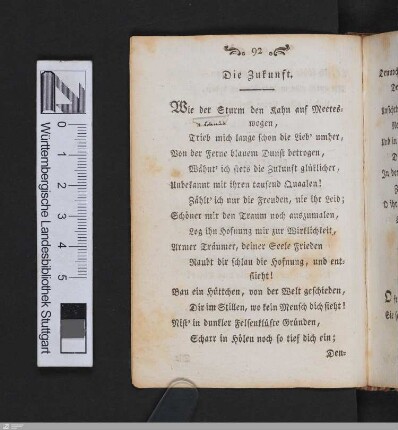 92
Die Zukunft.
Wie der Sturm den Kahn auf Meeres-
wogen,
Trieb mich lange schon die Lieb' umher,
Von der Ferne blauem Dunst betrogen,
Wähnt' ich stets die Zukunft glüklicher,
Unbekannt mit ihren tausend Quaalen!
Zählt' ich nur die Freuden, nie ihr Leid;
Schöner mir den Traum noch auszumalen,
Log ihn Hofnung mir zur Wirklichkeit,
Armer Träumer, deiner Seele Frieden
Raubt dir schlau die Hofnung, und ent-
flieht!
Bau ein Hüttchen, von der Welt geschieden,
Dir im Stillen, wo kein Mensch dich sieht!
Nist' in dunkler Felsenklüfte Gründen,
Scharr in Hölen noch so tief dich ein;
Den-
Württembergische Landesbibliothek Stuttgart
0
1
2
3
4
5